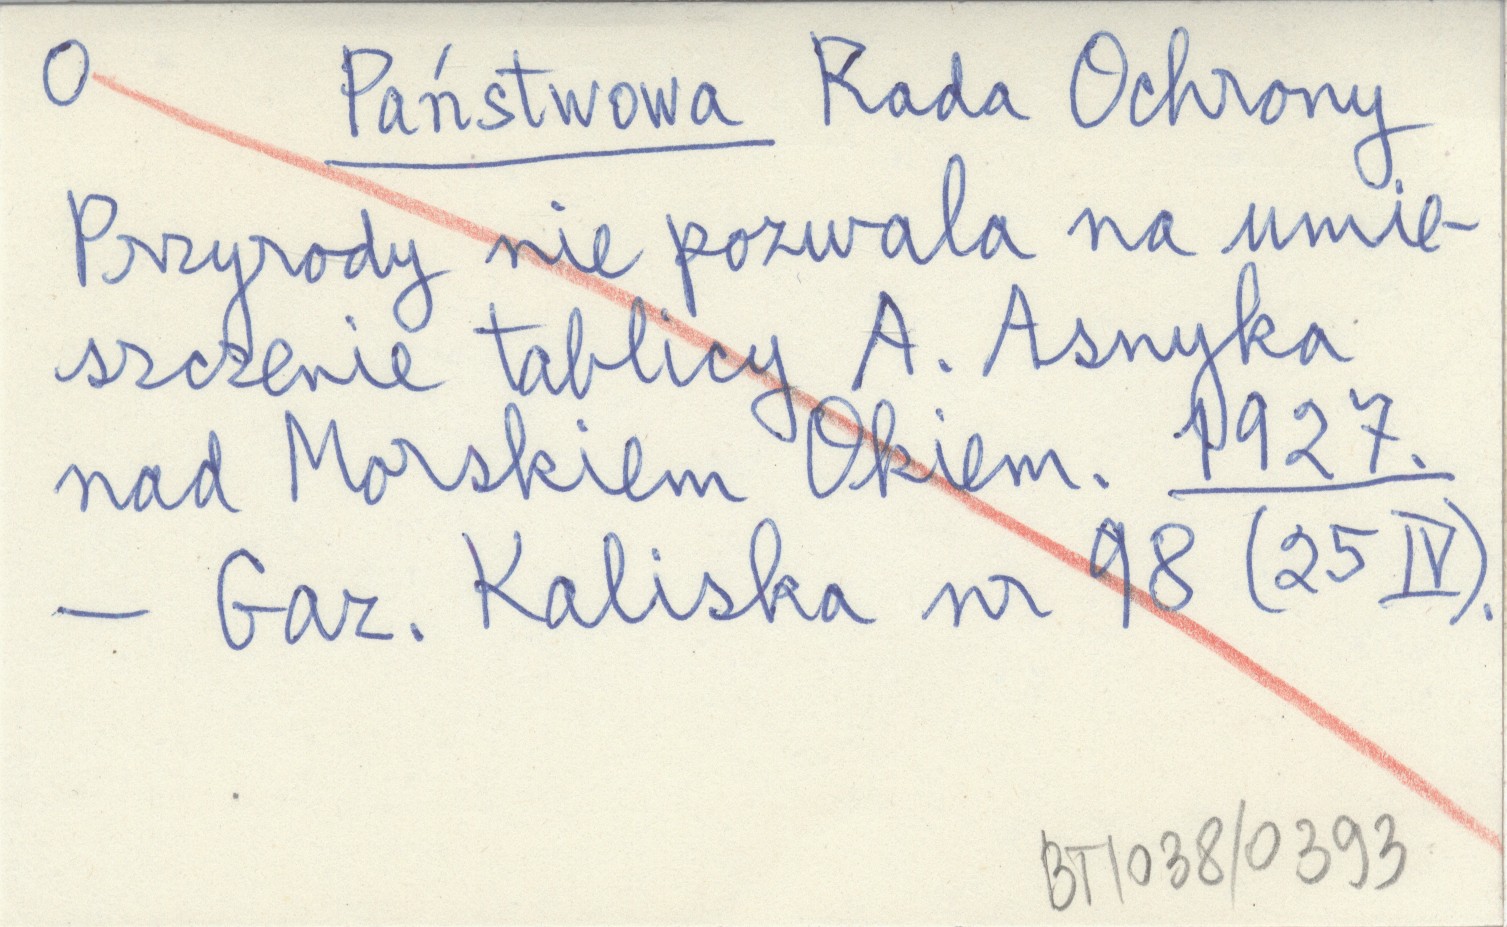 O Państwowa Rada Ochrony
Przyrody nie pozwala na umie-
szczenie tablicy A. Asnyka
nad Morskiem Okiem. 1927.
— Gaz. Kaliska nr 98 (25 IV).
BT/038/0393